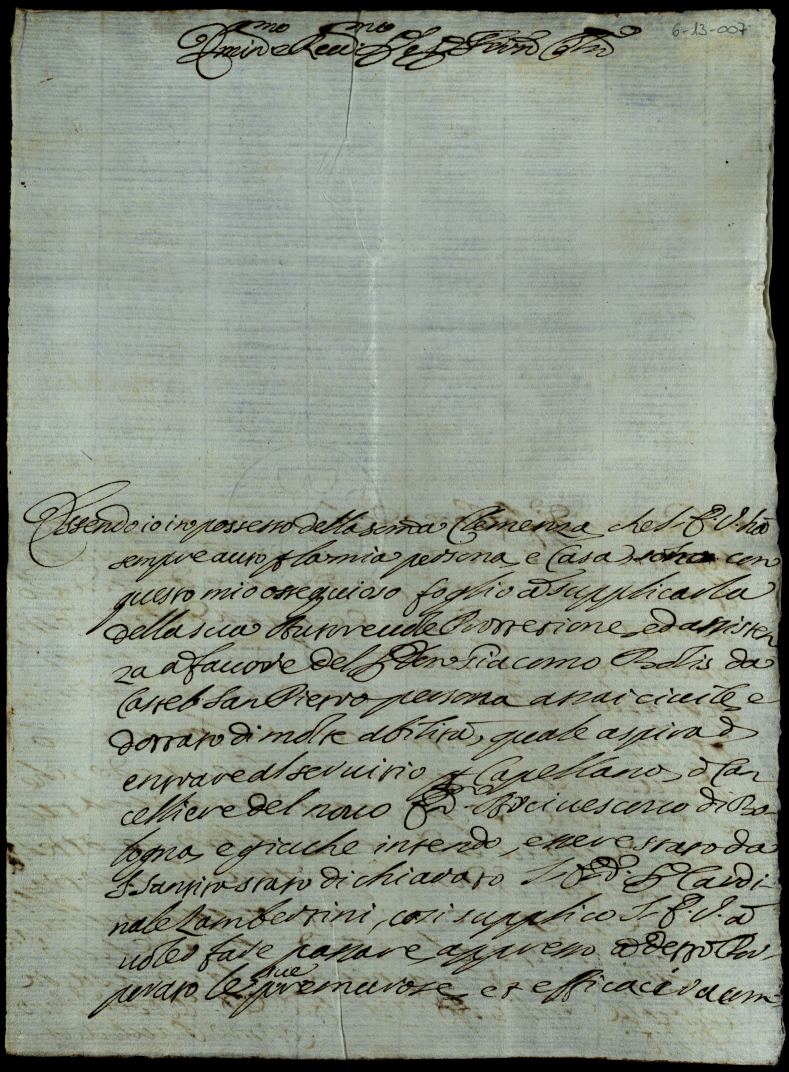 6-13-007
Em.mo e Rev.mo Sig.r e P.ron Col.mo
Essendo io in possesso della somma Clemenza che l'E.V. hà
sempre auto p la mia persona, e Casa, con
questo mio ossequioso foglio à supplicarla
della sua Autoreuole Protterione, ed assisten
za à fauore del Sig. Don Giacomo Bolis da
Castel San Pietro persona assai ciuile, e
dottato di molte abilità, quale aspira d
entrare al seruitio p Capellano, ò Can
celliere del nouo Arciuescouo di Bo
logna, e giache intendo, essere stato da
S. Santità stato dichiarato l' Sig. Cardi
nale Lambertini, così supplico l'E.V. à
uoler fare passare appresso à detto Por
porato le sue premurose, et efficaci racom